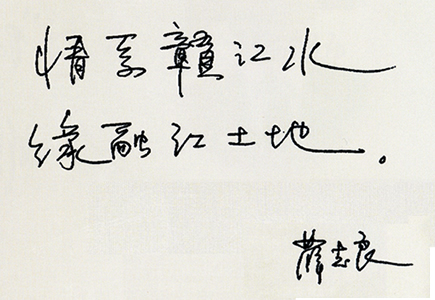 情系赣江水
缘融红土地。
薛志良